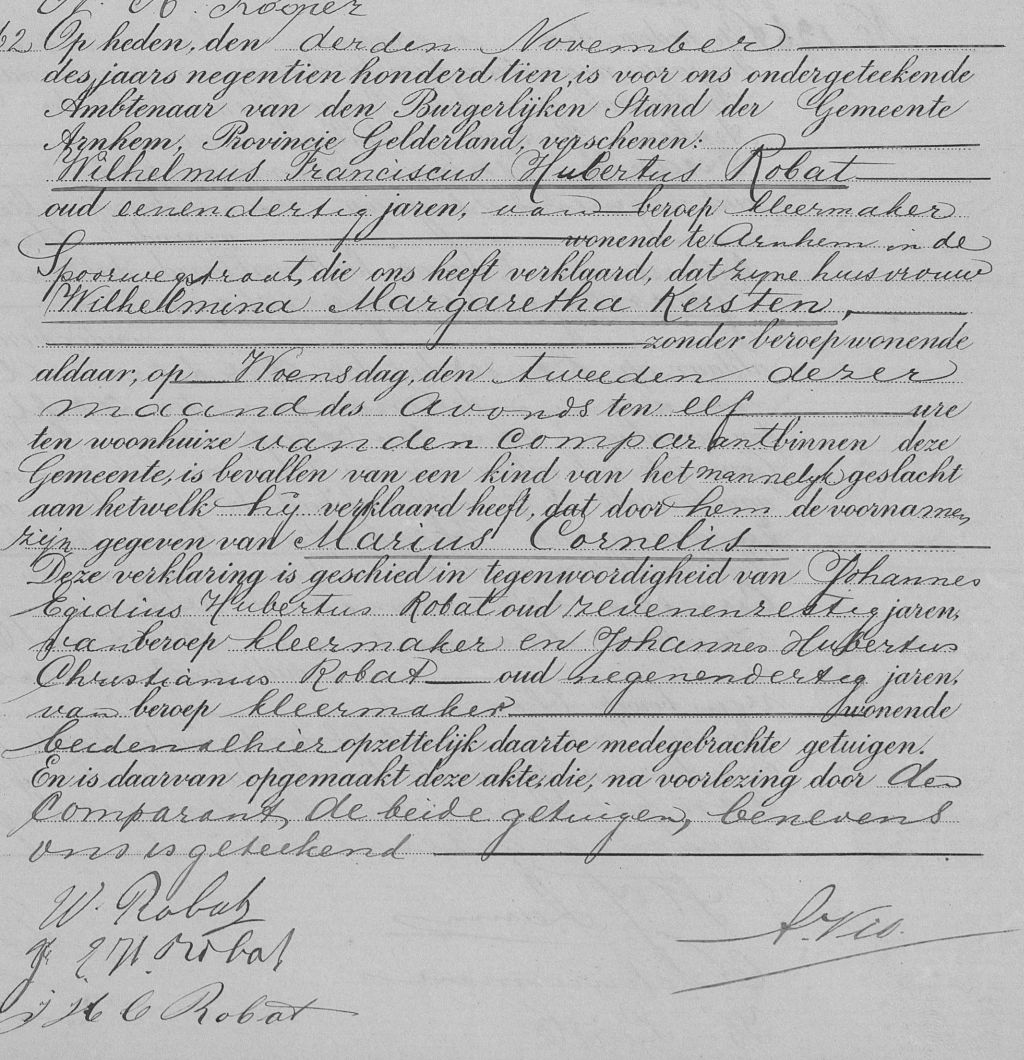 A. Kosper
62 Op heden, den derden November
des jaars negentien honderd tien, is voor ons ondergeteekende
Ambtenaar van den Burgerlijken Stand der Gemeente
Arnhem, Provincie Gelderland, verschenen:
Wilhelmus Franciscus Hubertus Robat
oud eenendertig jaren, van beroep kleermaker
wonende te Arnhem in de
Spoorwegstraat, die ons heeft verklaard, dat zyne huisvrouw
Wilhelmina Margaretha Kersten,
zonder beroep wonende
aldaar, op Woensdag, den tweeden dezer
maand des Avonds ten elf ure
ten woonhuize van den comparant binnen deze
Gemeente, is bevallen van een kind van het mannelyk geslacht
aan hetwelk hij verklaard heeft, dat door hem de voornamen
zijn gegeven van Marius Cornelis
Deze verklaring is geschied in tegenwoordigheid van Johannes
Egidius Hubertus Robat oud zevenenzestig jaren,
van beroep kleermaker en Johannes Hubertus
Christianus Robat oud negenendertig jaren,
van beroep kleermaker wonende
beiden alhier opzettelijk daartoe medegebrachte getuigen.
En is daarvan opgemaakt deze akte, die, na voorlezing door den
Comparant, de beide getuigen, benevens
ons is geteekend
W. Robat
H. Robat
J H C Robat